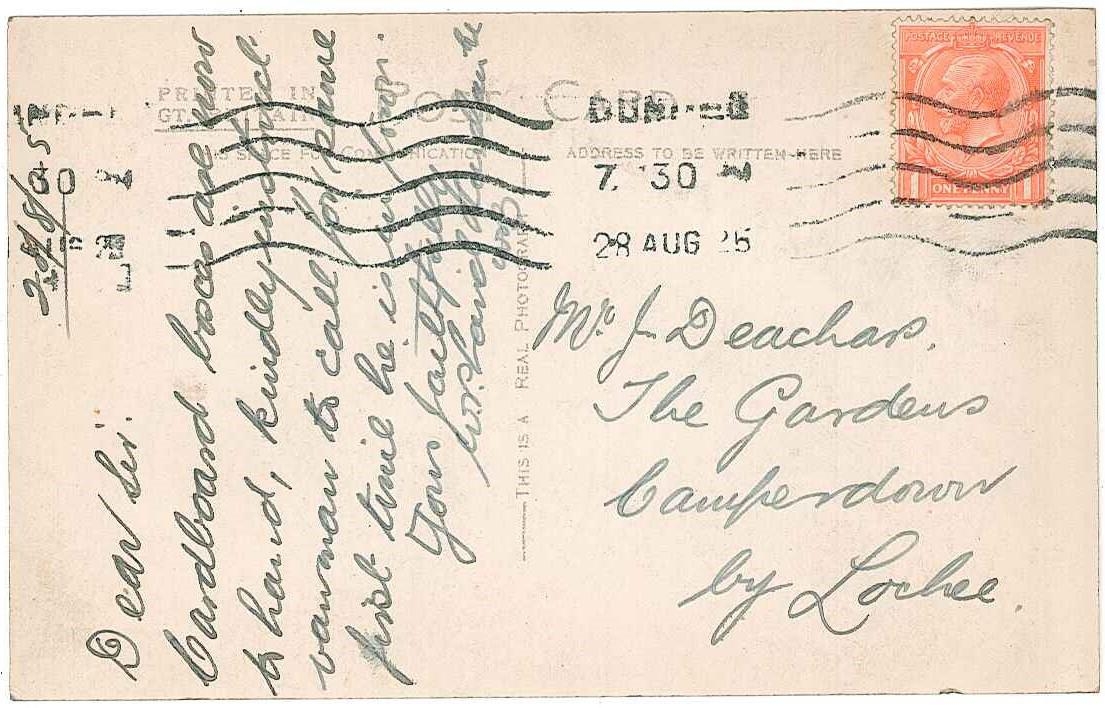 28/8/25
Dear Sir.
Cardboard boxes are now
to hand, kindly instruct
vanman to call for same
first time he is in
Yours faithfully
PRINTED IN
GT. BRITAIN
POST CARD
THIS SPACE FOR COMMUNICATION
ADDRESS TO BE WRITTEN HERE
THIS IS A REAL PHOTOGRAPH
DUNDEE
7. 30
28 AUG 25
POSTAGE REVENUE
1 ONE PENNY 1
Mr. J. Deachars.
The Gardens
Camperdown
by Lochee.